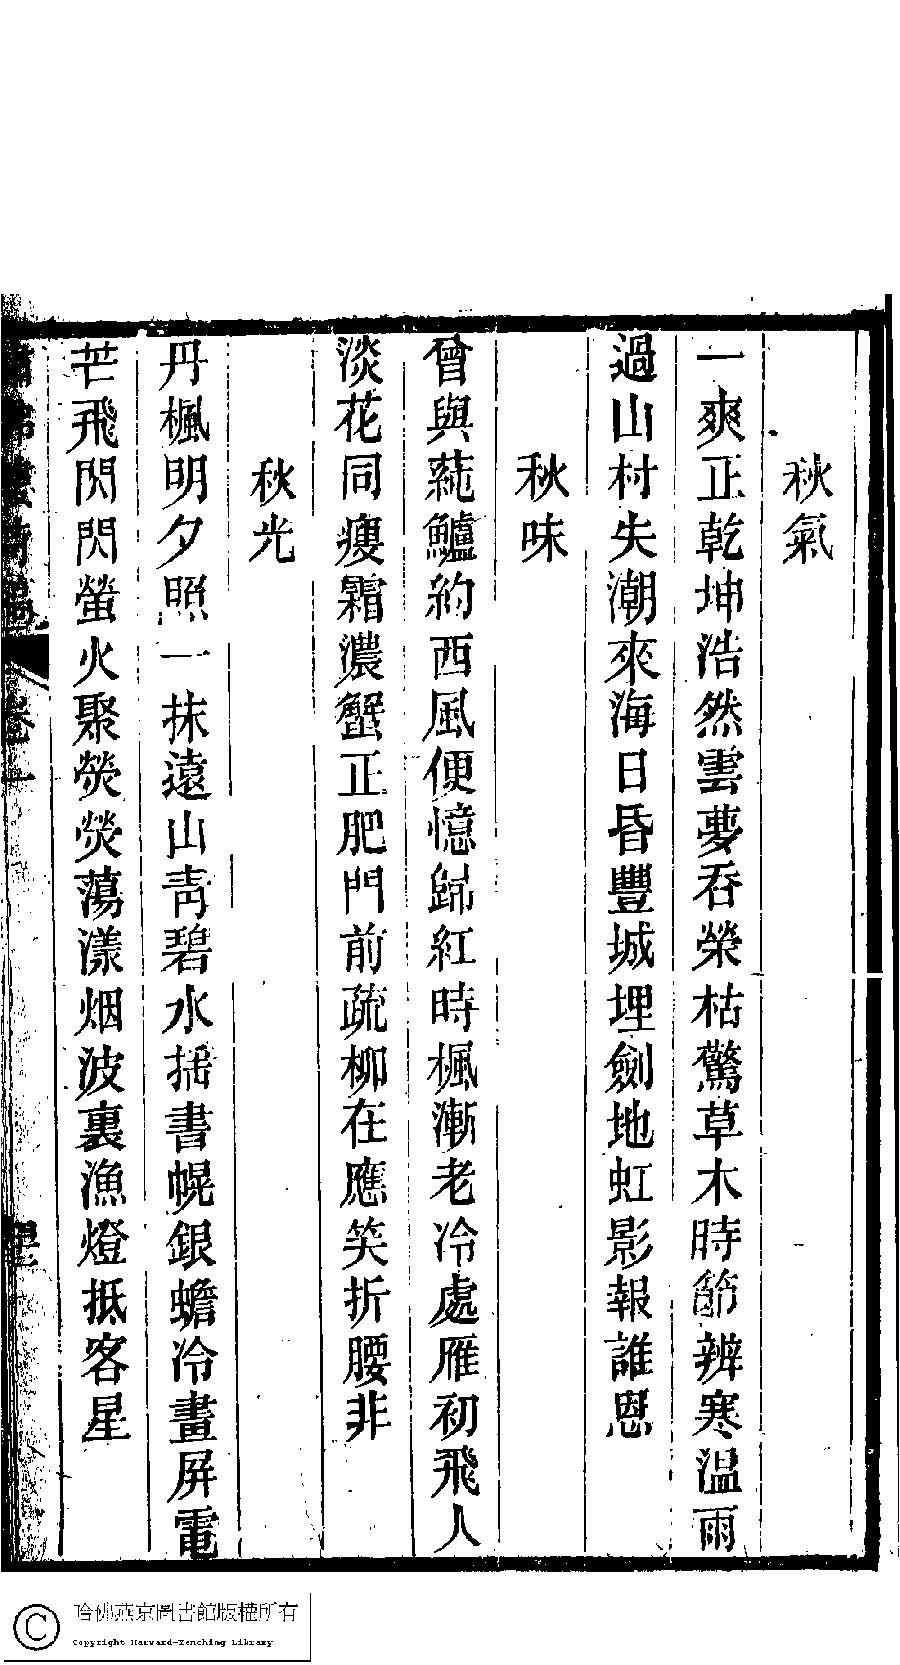 秋氣
一爽正乾坤浩然雲夢吞榮枯驚草木時節辨寒温雨
過山村失潮來海日昏豐城埋劍地虹影報誰恩
秋味
曾與蒓鱸約西風便憶歸紅時楓漸老冷處雁初飛人
淡花同瘦霜濃蟹正肥門前疏柳在應笑折腰非
秋光
丹楓明夕照一抹遠山靑碧水揺書幌銀蟾冷畫屏電
芒飛閃閃螢火聚熒熒蕩漾烟波裏漁燈抵客星
卷一
哈佛燕京圖書館版權所有
Copyright Harvard-Yenching Library